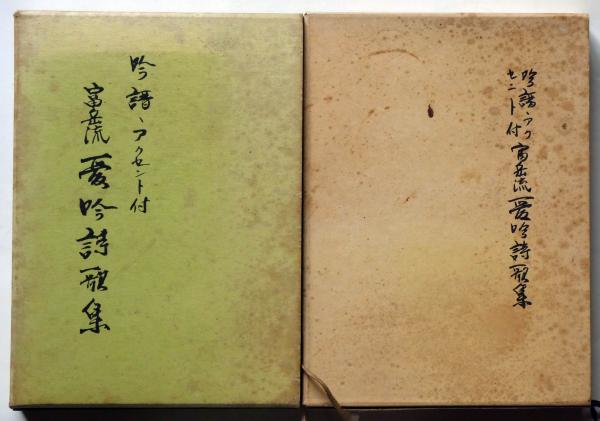 吟譜、アクセント付
富岳流 愛吟詩歌集
吟譜、アク
セント付 富岳流 愛吟詩歌集